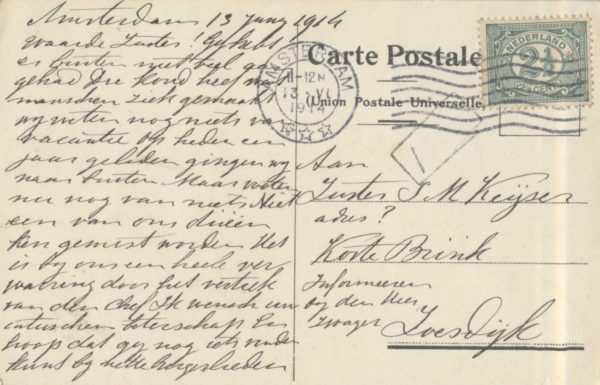 Amsterdam 13 Juny 1914
Waarde Zuster! Gy hebt
er buiten niet veel aan
gehad Die hond heeft
menschen ziek gemaakt
wy weten nog niets van
vacantie op heden een
jaar geleden gingen wy
naar buiten Maar weten
nu nog van niets Niet
een van ons drieën
kan gemist worden Het
is by ons een heele ver
warring door het vertrek
van den chef Ik wensch u
beterschap En
hoop dat gy nog iets vinden
kunt by
Carte Postale
(Union Postale Universelle.)
AMSTERDAM
11-12N
13 VI
1914
NEDERLAND
2½
1
Aan
Zuster S M Keyser
adres?
Korte Brink
Informeeren
by den Heer
Zwager
Soesdijk